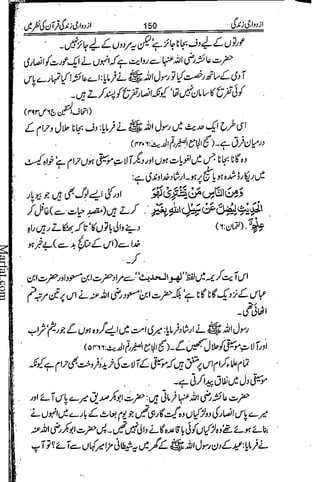 ازدواجی زندگی 150 ازدواجی زندگی قرآن کی نظر میں
عورتوں کے لیے دف بجانا جائز ہے لیکن یہ مردوں کے لیے جائز نہیں۔
حضرت عائشہ رضی اللہ عنہا سے روایت ہے کہ انہوں نے ایک عورت کو انصاری
آدمی کے ساتھ رخصت کیا تو رسول اللہ ﷺ نے فرمایا: اے عائشہ! کیا تمہارے پاس
کوئی تفریح کا سامان نہیں تھا، کیونکہ انصار تفریح کو پسند کرتے ہیں۔
اسی طرح ایک حدیث میں رسول اللہ ﷺ نے فرمایا: دف بجانا حلال و حرام کے
درمیان فرق ہے۔ (صحیح الجامع الصغیر رقم الحدیث:
وہ گانا بجانا جس میں لغویات ہوں اور دیگر آلات موسیقی ہوں حرام ہے، خواہ کیسٹ
میں ریکارڈ شدہ ہو یا سٹیج پر ہو۔ ارشاد خداوندی ہے:
وَمِنَ النَّاسِ مَنْ يَّشْتَرِىْ لَهْوَ اور کئی ایسے لوگ بھی ہیں جو بیوپار
الْحَدِيْثِ لِيُضِلَّ عَنْ سَبِيْلِ اللّٰهِ بِغَيْرِ کرتے ہیں (مقصدِ حیات سے) غافل کر
عِلْمٍ۔ (لقمان:۶) دینے والی باتوں کا تاکہ بھٹکاتے رہیں راہِ
خدا سے (اس کے نتائج بد سے) بے خبر ہو
کر۔
اس آیت کریمہ میں لفظ "لهو الحديث" سے مراد حضرت ابن مسعود اور حضرت ابن
عباس کے نزدیک گانا گانا ہے، بلکہ حضرت ابن مسعود رضی اللہ عنہ نے اس پر تین مرتبہ قسم
اٹھائی تھی۔
رسول اللہ ﷺ نے ارشاد فرمایا: میری امت میں ایسے گروہ ہوں گے جو ریشم، شراب
اور آلات موسیقی کو حلال سمجھیں گے۔ (صحیح الجامع الصغیر رقم الحدیث:
تمام علماء کرام اس پر متفق ہیں کہ موسیقی کے آلات کی خرید و فروخت بھی حرام ہے کیونکہ
موسیقی دل میں نفاق پیدا کرتی ہے۔
حضرت عائشہ رضی اللہ عنہا فرماتی ہیں: حضرت ابوبکر صدیق میرے پاس آئے اور
میرے پاس انصار کی دو لڑکیاں وہ گیت گا رہی تھیں جو یوم بعاث کے بارے میں انہوں نے
بنائے ہوئے تھے، وہ لڑکیاں کوئی باقاعدہ گانے والی نہیں تھیں۔ پس حضرت ابوبکر رضی اللہ عنہ
نے فرمایا: عید کے دن رسول اللہ ﷺ کے گھر میں یہ شیطانی مزامیر کہاں سے آئے؟ تو آپ
Marfat.com